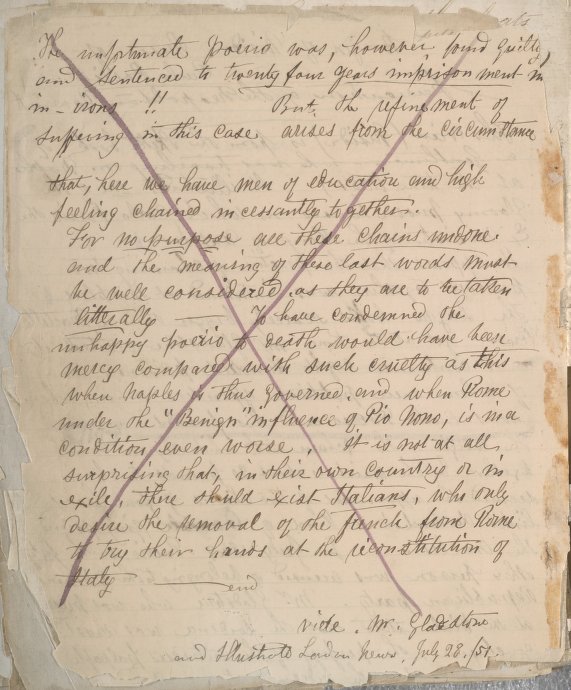 The unfortunate poerio was, however, found guilty,
and sentenced to twenty four years imprisonment in
in-irons !! But, the refinement of
suffering in this case arises from the circumstance
that, here we have men of education and high
feeling chained incessantly together.
For no purpose are these chains undone.
and the meaning of these last words must
be well considered, as they are to be taken
litterally — To have condemned the
unhappy poerio to death would have been
mercy compared with such cruelty as this
when Naples is thus governed, and when Rome
under the "Benign" influence of Pio Nono, is in a
condition even worse, it is not at all
surprising that, in their own country or in
exile, there should exist Italians, who only
desire the removal of the french from Rome
to try their hands at the reconstitution of
Italy — end
vide. Mr. Gladstone
and Illustrate London News, July 28. /51.